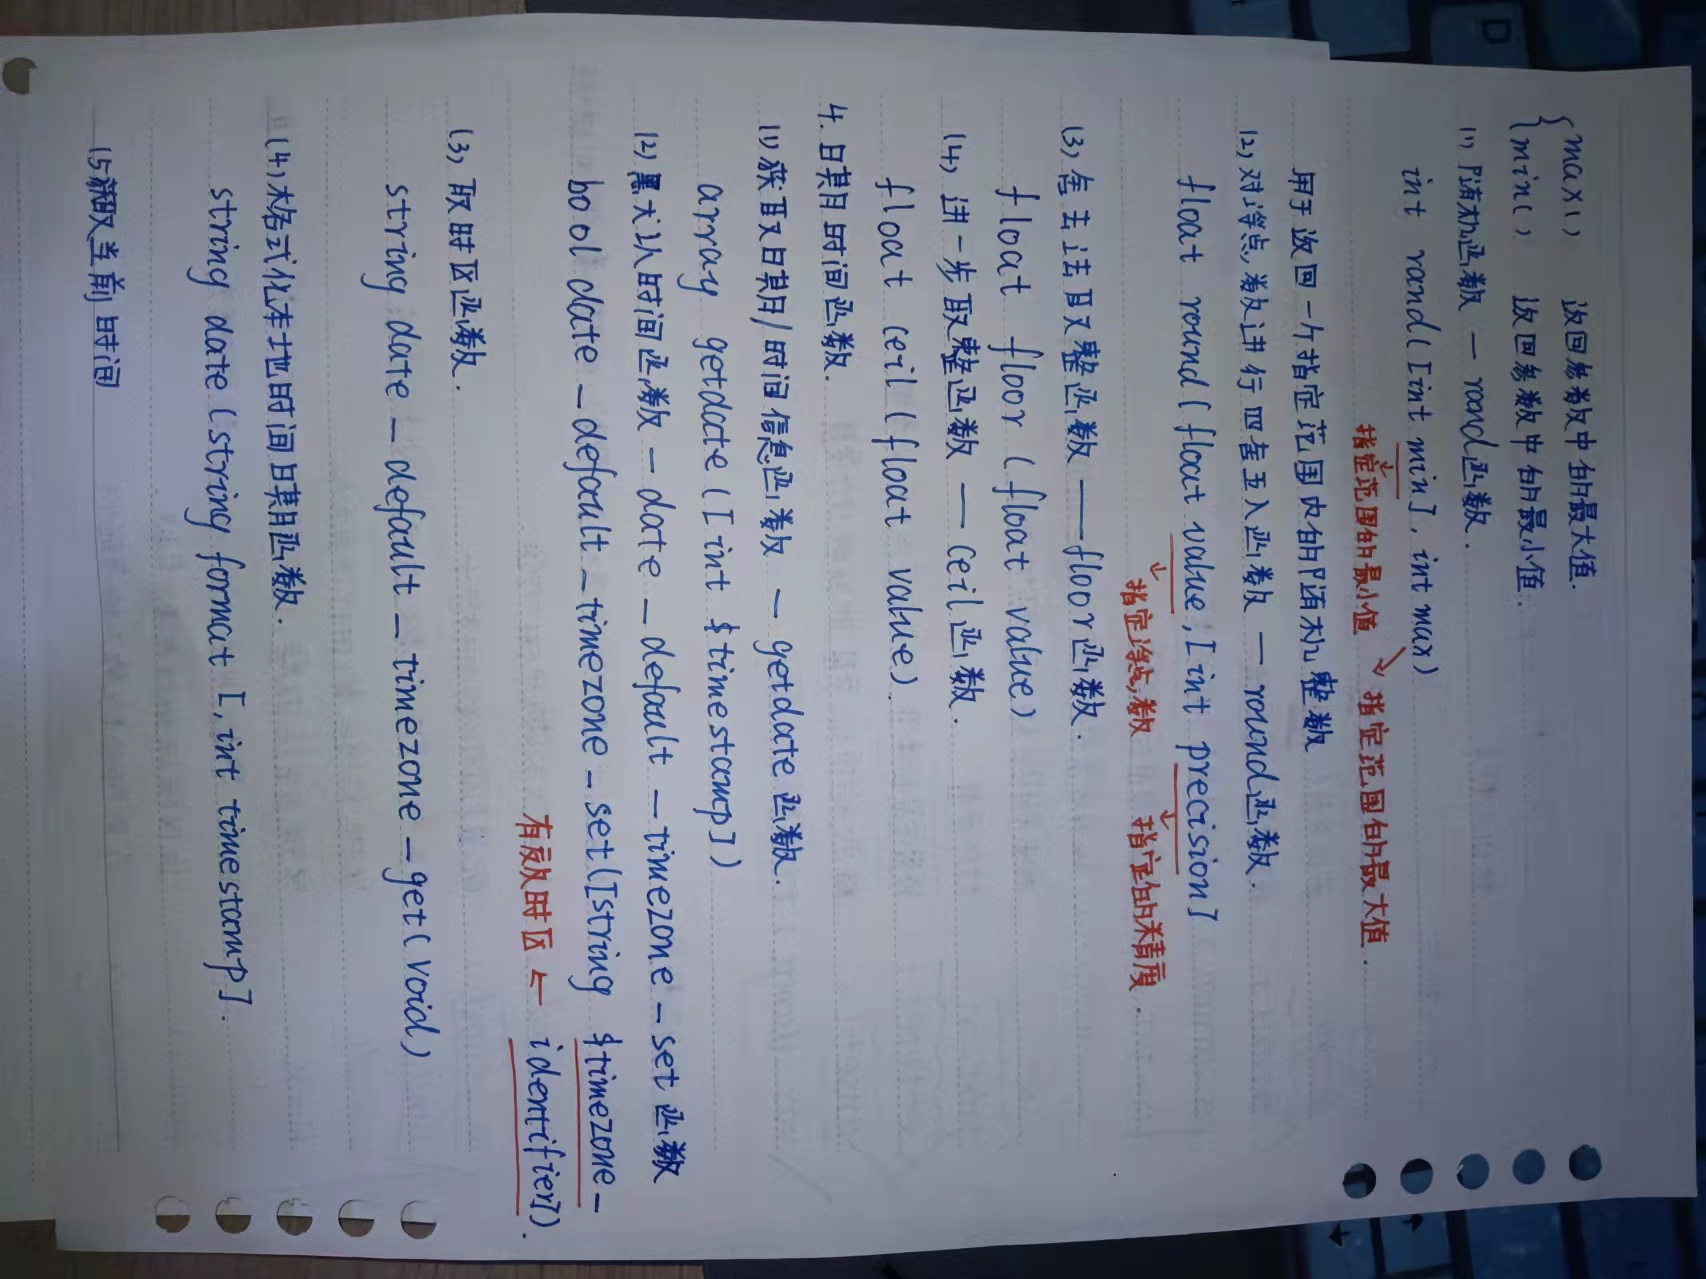 max() 返回参数中的最大值.
min() 返回参数中的最小值.
(1) 随机函数 — rand函数.
int rand([int min], int max)
指定范围的最小值 指定范围的最大值.
用于返回一个指定范围内的随机整数
(2) 对浮点数进行四舍五入函数 — round函数.
float round(float value,[int precision]
指定浮点数 指定的精度.
(3) 舍去法取整函数 — floor函数.
float floor (float value)
(4) 进一步取整函数 — ceil函数.
float ceil (float value)
4. 日期时间函数.
(1) 获取日期/时间信息函数 — getdate函数.
array getdate ([int $timestamp])
(2) 默认时间函数 — date_default_timezone_set函数
bool date_default_timezone_set([string $timezone-
有效时区 ← identifier]).
(3) 取时区函数.
string date_default_timezone_get(void)
(4) 格式化本地时间日期函数.
string date (string format [,int timestamp].
(5) 获取当前时间